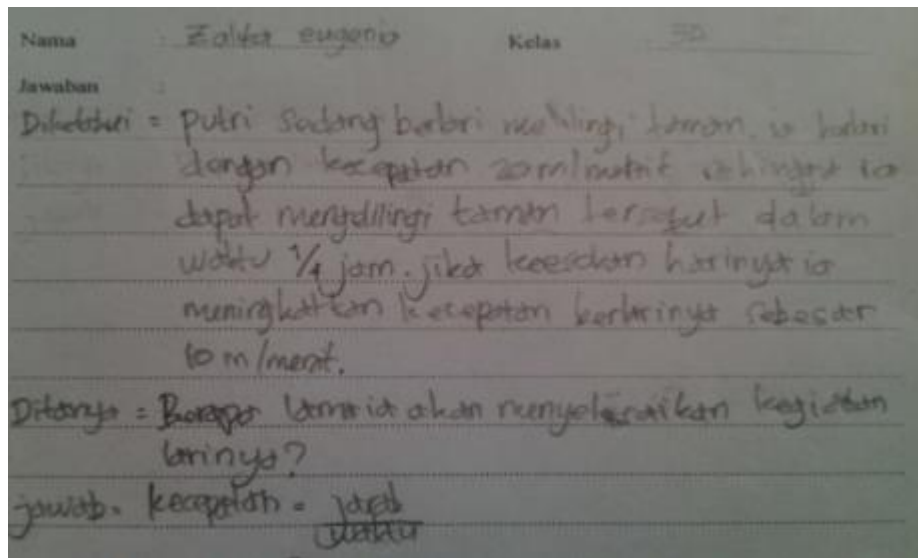 Nama : Zalita eugenio Kelas : 3D
Jawaban :
Diketahui = putri sedang berlari mengelilingi taman. ia berlari
dengan kecepatan 20 m/menit sehingga ia
dapat mengelilingi taman tersebut dalam
waktu 1/4 jam. jika keesokan harinya ia
meningkatkan kecepatan berlarinya sebesar
10 m/menit.
Ditanya = Berapa lama ia akan menyelesaikan kegiatan
larinya?
jawab = kecepatan = jarak
waktu